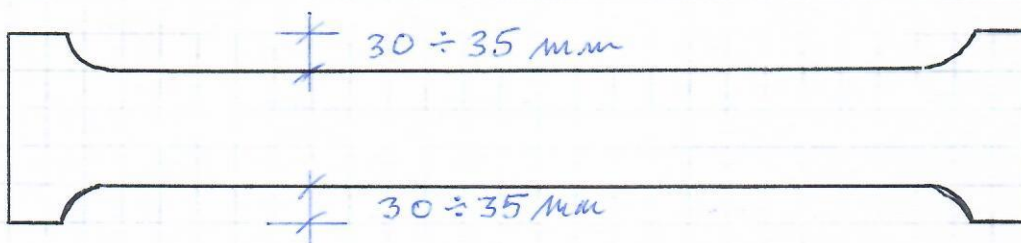 30 ÷ 35 mm
30 ÷ 35 mm